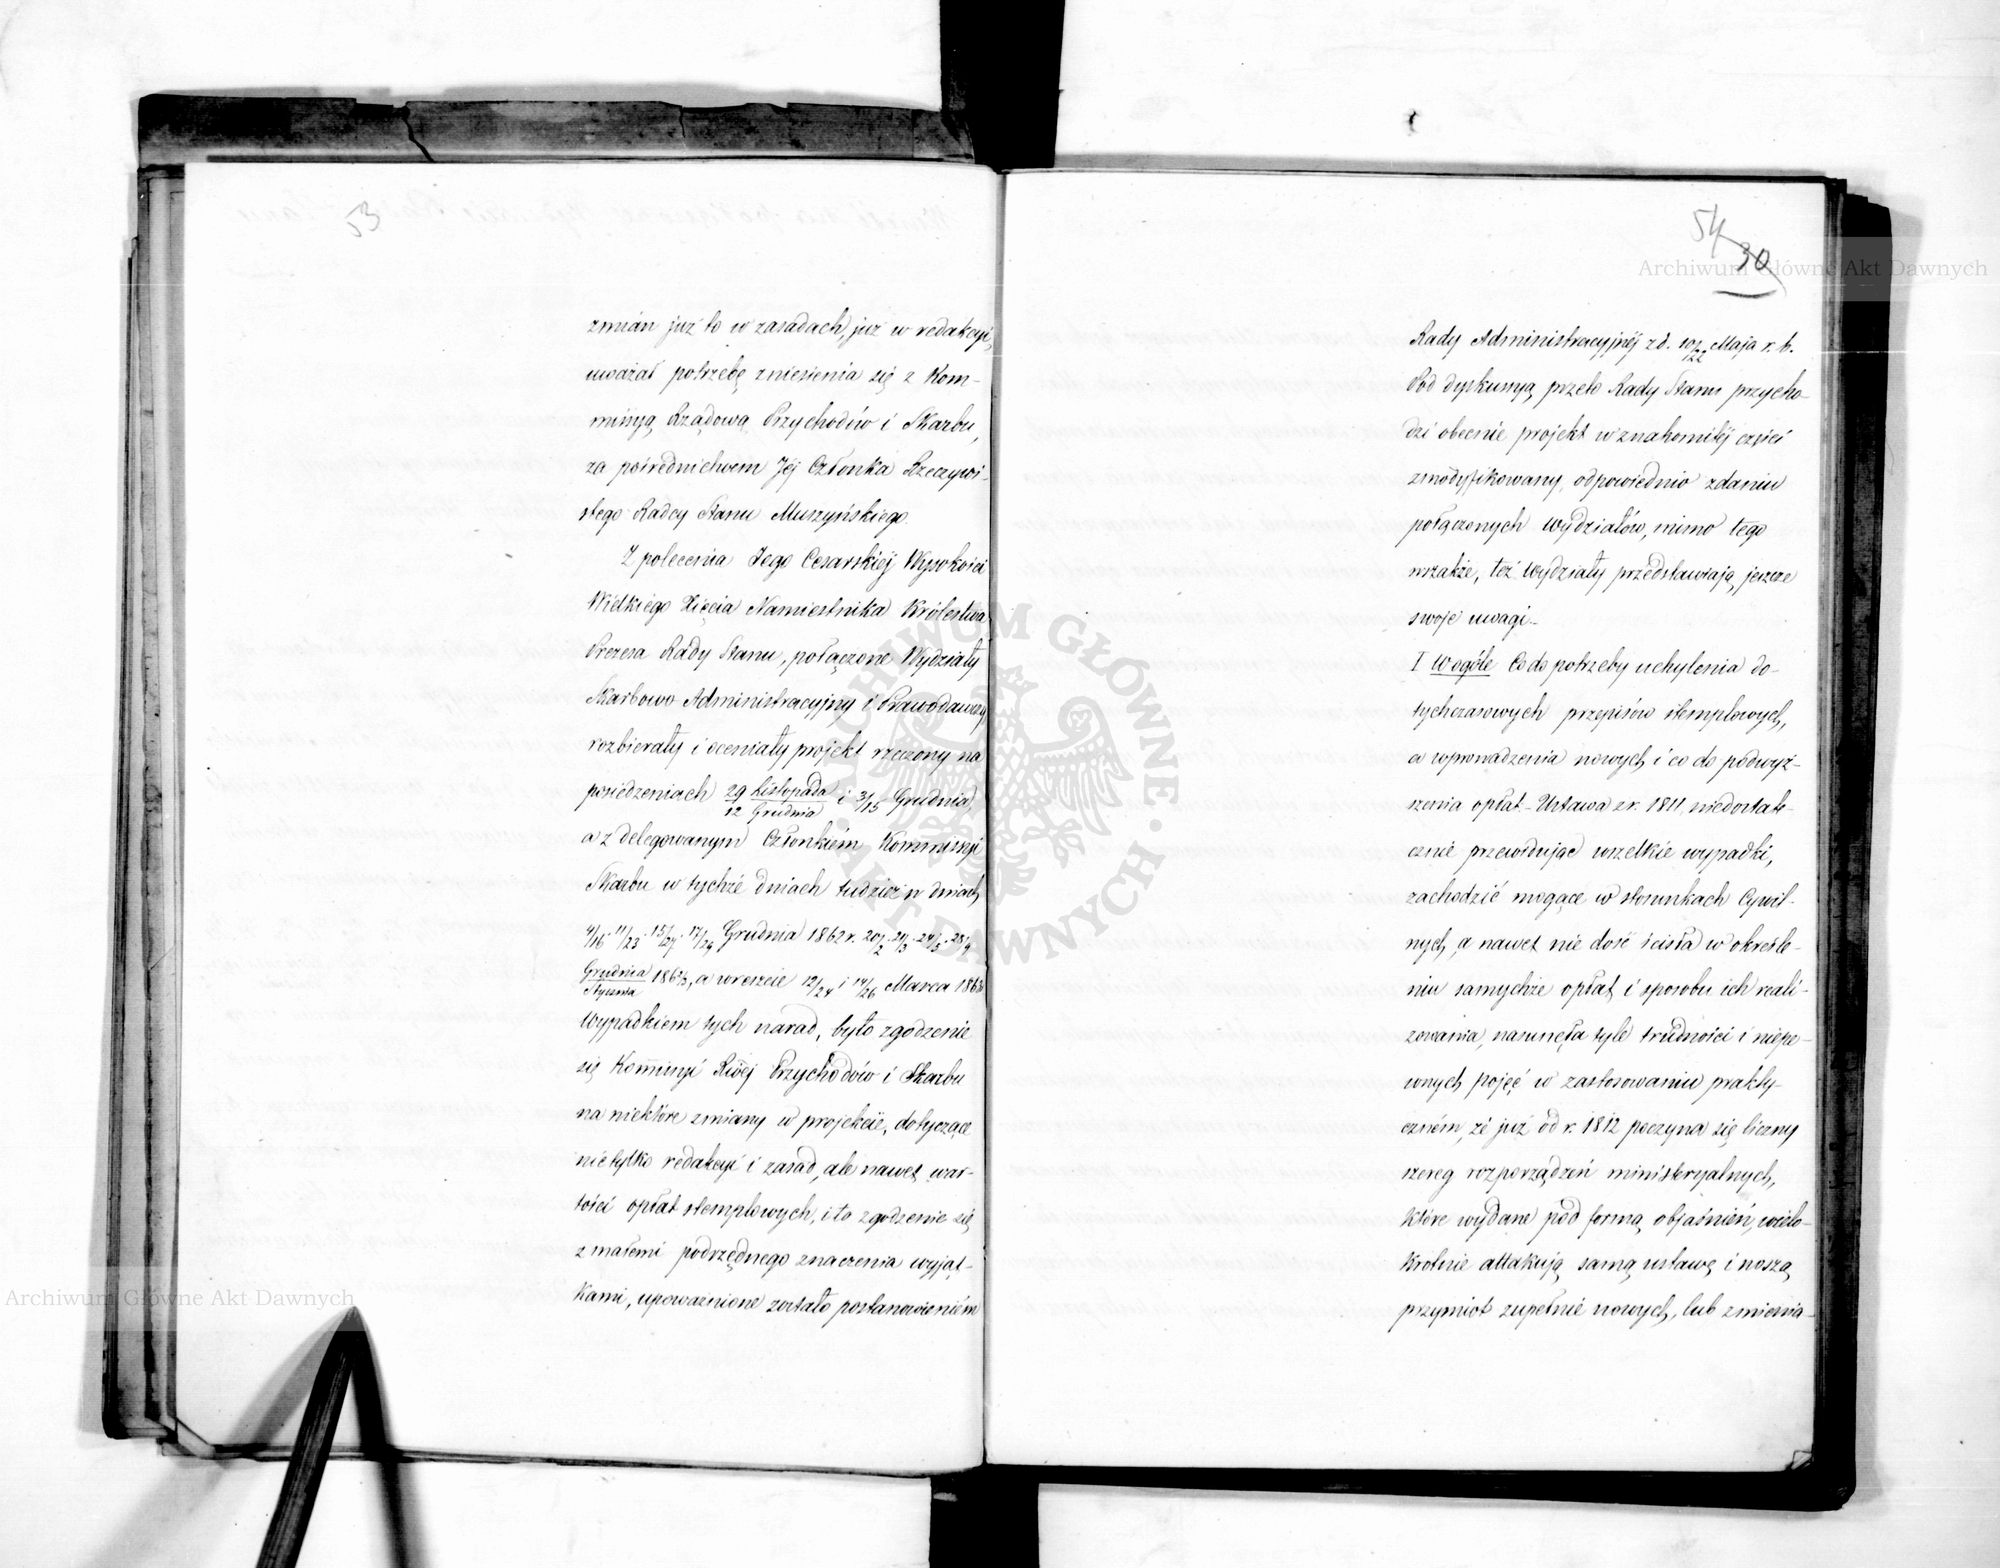 53
zmian już to w zasadach, już w redakcyi,
uważał potrzebę zniesienia się z Kom-
missyą Rządową Przychodów i Skarbu,
za pośrednictwem Jéj Członka Rzeczywi-
stego Radcy Stanu Muszyńskiego.
Z polecenia Jego Cesarskiéj Wysokości
Wielkiego Xięcia Namiestnika Królestwa
Prezesa Rady Stanu, połączone Wydziały
Skarbowo Administracyjny i Prawodawczy
rozbierały i oceniały projekt rzeczony na
posiedzeniach 29 Listopada/12 Grudnia i 3/15 Grudnia,
a z delegowanym Członkiem Kommissyi
Skarbu w tychże dniach tudzież w dniach
4/16. 11/23. 15/27. 17/29 Grudnia 1862 r. 20/2. 21/3. 24/5. 28/9
Grudnia/Stycznia 1862/3, a wreszcie 12/24 i 14/26 Marca 1863
Wypadkiem tych narad, było zgodzenie
się Kommissyi Rząéj Przychodów i Skarbu
na niektóre zmiany w projekcie, dotyczące
nietylko redakcyi i zasad, ale nawet war-
tości opłat stemplowych, i to zgodzenie się
z małemi podrzędnego znaczenia wyjąt-
kami, upoważnione zostało postanowieniem
54
30
Rady Administracyjnéj z d. 10/22 Maja r. b.
Pod dyskussyą przeto Rady Stanu przycho-
dzi obecnie projekt w znakomitéj części
zmodyfikowany, odpowiednio zdaniu
połączonych Wydziałów, mimo tego
wszakże, też Wydziały przedstawiają jeszcze
swoje uwagi.
I W ogóle Co do potrzeby uchylenia do-
tychczasowych przepisów stemplowych,
a wprowadzenia nowych i co do podwyż-
szenia opłat - Ustawa z r. 1811 niedostate-
cznie przewidując wszelkie wypadki,
zachodzić mogące w stosunkach Cywil-
nych, a nawet nie dość ścisła w określe-
niu samychże opłat i sposobu ich reali-
zowania, nasunęła tyle trudności i niepe-
wnych pojęć w zastosowaniu prakty-
czném, że już od r. 1812 poczyna się liczny
szereg rozporządzeń ministeryalnych,
które wydane pod formą objaśnień, wielo-
krotnie attakują samą ustawę i noszą
przymiot zupełnie nowych, lub zmienia-
Archiwum Główne Akt Dawnych
Archiwum Główne Akt Dawnych
ARCHIWUM GŁÓWNE · AKT DAWNYCH ·